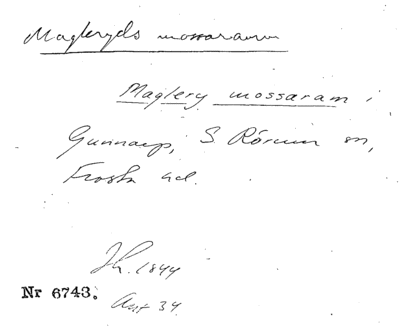 Magleryds mossarum
Maglery mossaram,
Gunnarp, S Rörum sn,
Frosta hd.
Jh. 1844
Nr 6743.
Ant 34